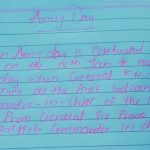 Army Day
Army day is celebrated
on the 15th Jan to
day when General K.
over as the first Indian
-in-chief of the
From General Sir
British Commander in ch